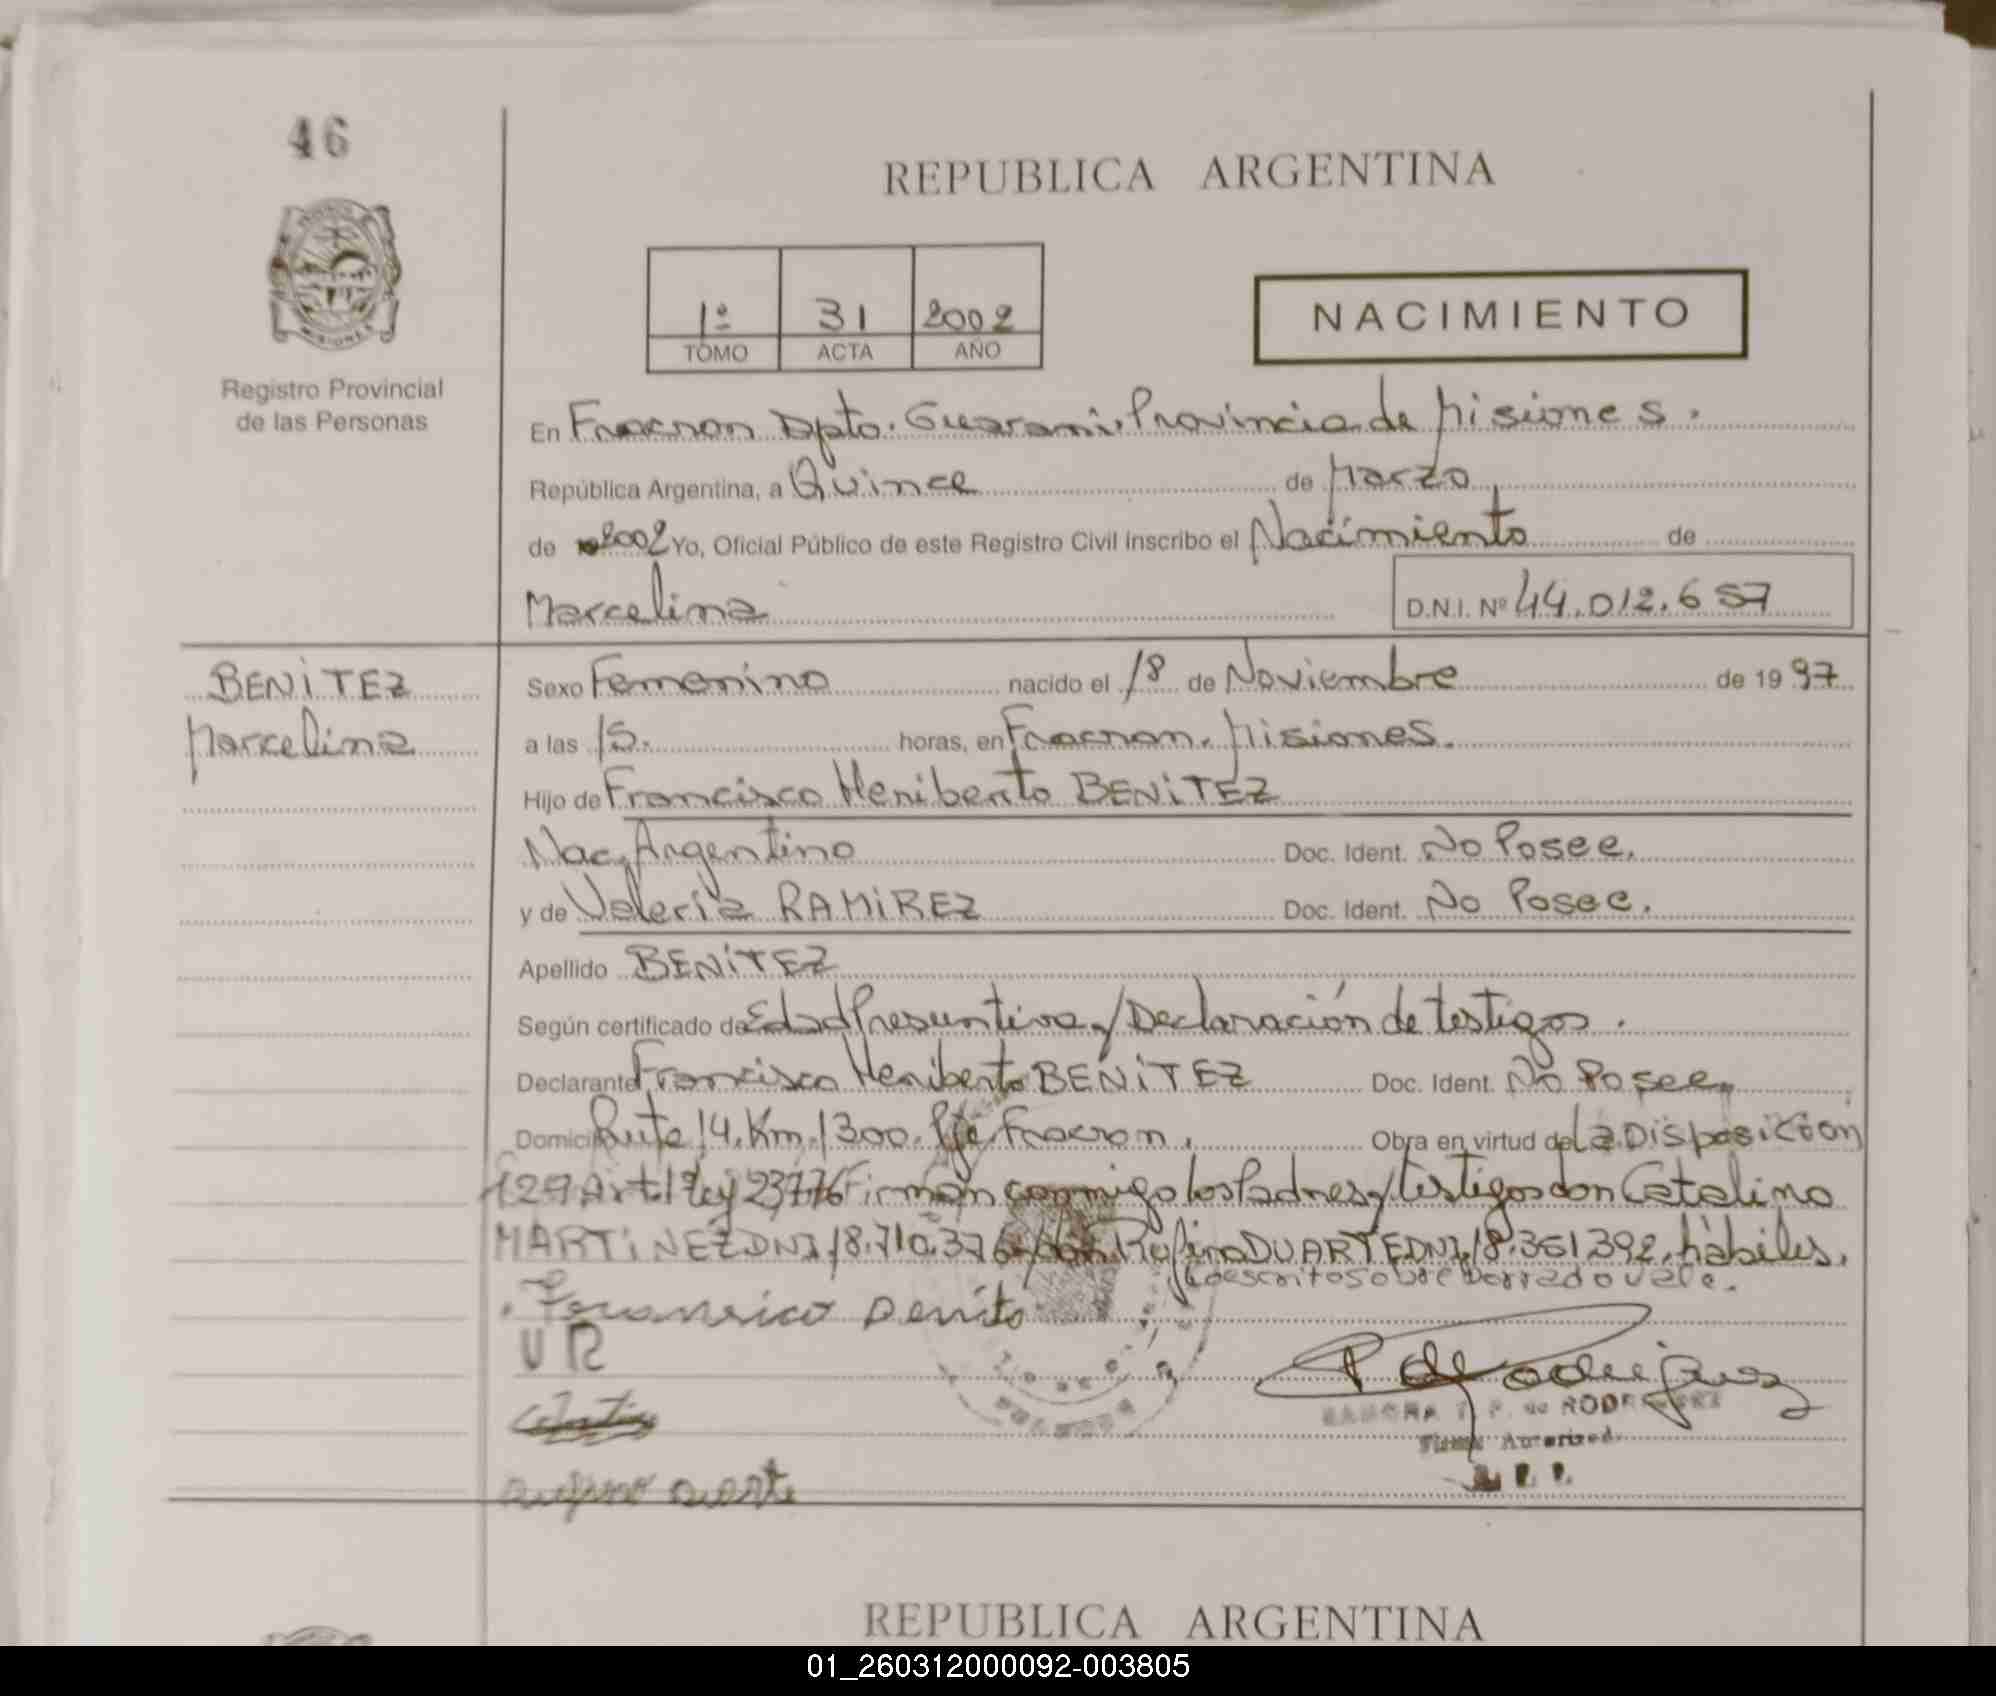 46
REPUBLICA ARGENTINA
1º 31 2002
TOMO ACTA AÑO
NACIMIENTO
Registro Provincial
de las Personas
En Fracran Dpto. Guarani. Provincia de Misiones.
República Argentina, a Quince de Marzo
de 2002 Yo, Oficial Público de este Registro Civil inscribo el Nacimiento de
Marcelina D.N.I. Nº 44.012.657
BENITEZ
Marcelina
Sexo Femenino nacido el 18 de Noviembre de 1997
a las 15. horas, en Fracran. Misiones.
Hijo de Francisco Heriberto BENITEZ
Nac. Argentino Doc. Ident. No Posee.
y de Valeria RAMIREZ Doc. Ident. No Posee.
Apellido BENITEZ
Según certificado de Edad Presuntiva y Declaración de testigos.
Declarante Francisco Heriberto BENITEZ Doc. Ident. No Posee.
Domici Ruta 14. Km. 1300. Pje Fracran. Obra en virtud de La Disposición
129 Art. 1º Ley 23776 Firman conmigo los Padres y testigos don Catalino
MARTINEZ DNI 18.710.376 y don Rufino DUARTE DNI. 18.361.392, hábiles.
Lo escrito sobre borrado vale.
Benito
VR
P de Rodriguez
RAMONA T. P. de RODRIGUEZ
Firma Autorizada
REPUBLICA ARGENTINA
01_260312000092-003805